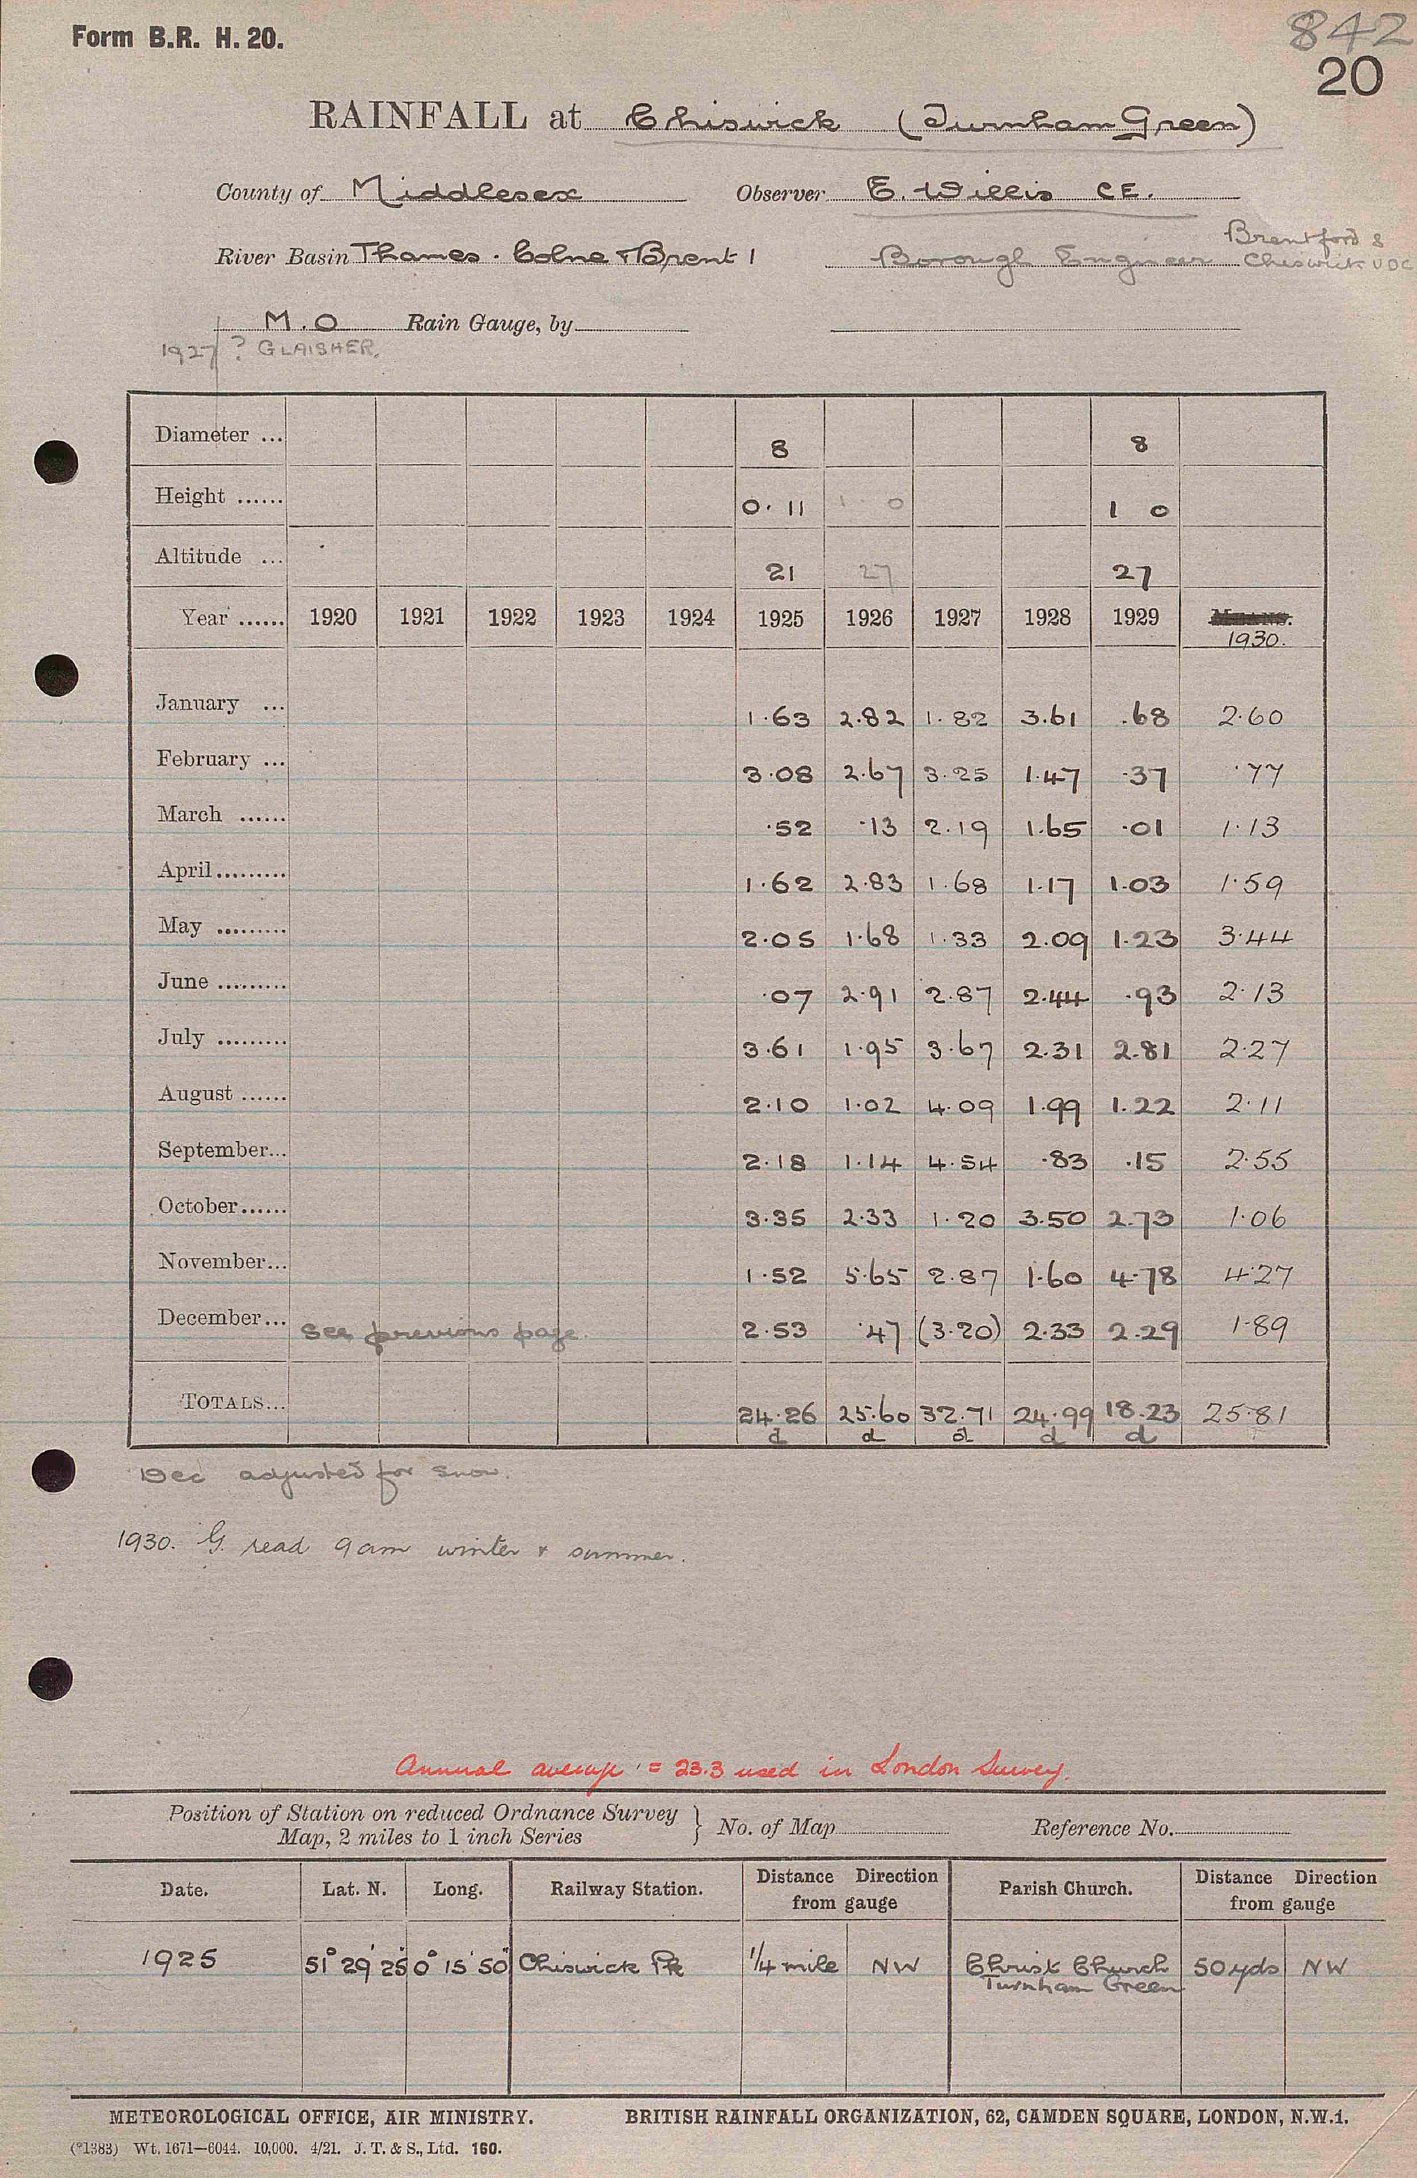 Form B.R. H. 20.
842
20
RAINFALL at Chiswick (Turnham Green)
County of Middlesex Observer E. Willis C.E.
River Basin Thames. Colne & Brent 1 Borough Engineer Brentford & Chiswick UDC
M.O Rain Gauge, by
1927 ? GLAISHER.
Diameter ... 8 8
Height ...... 0. 11 1 0 1 0
Altitude ... 21 27 27
Year ...... 1920 1921 1922 1923 1924 1925 1926 1927 1928 1929 MEANS. 1930.
January ... 1.63 2.82 1.82 3.61 .68 2.60
February ... 3.08 2.67 3.25 1.47 .37 .77
March ...... .52 .13 2.19 1.65 .01 1.13
April ......... 1.62 2.83 1.68 1.17 1.03 1.59
May ......... 2.05 1.68 1.33 2.09 1.23 3.44
June ......... .07 2.91 2.87 2.44 .93 2.13
July ......... 3.61 1.95 3.67 2.31 2.81 2.27
August ...... 2.10 1.02 4.09 1.99 1.22 2.11
September... 2.18 1.14 4.54 .83 .15 2.55
October...... 3.35 2.33 1.20 3.50 2.73 1.06
November... 1.52 5.65 2.87 1.60 4.78 4.27
December... See previous page. 2.53 .47 (3.20) 2.33 2.29 1.89
TOTALS... 24.26 25.60 32.71 24.99 18.23 25.81
d d d d d
Dec adjusted for snow.
1930. G. read 9am winter & summer.
Annual average = 23.3 used in London Survey.
Position of Station on reduced Ordnance Survey Map, 2 miles to 1 inch Series } No. of Map Reference No.
Date. Lat. N. Long. Railway Station. Distance Direction from gauge Parish Church. Distance Direction from gauge
1925 51° 29' 25" 0° 15' 50" Chiswick Pk 1/4 mile NW Christ Church Turnham Green 50 yds NW
METEOROLOGICAL OFFICE, AIR MINISTRY. BRITISH RAINFALL ORGANIZATION, 62, CAMDEN SQUARE, LONDON, N.W.1.
(*1383) Wt. 1671—6044. 10,000. 4/21. J. T. & S., Ltd. 160.